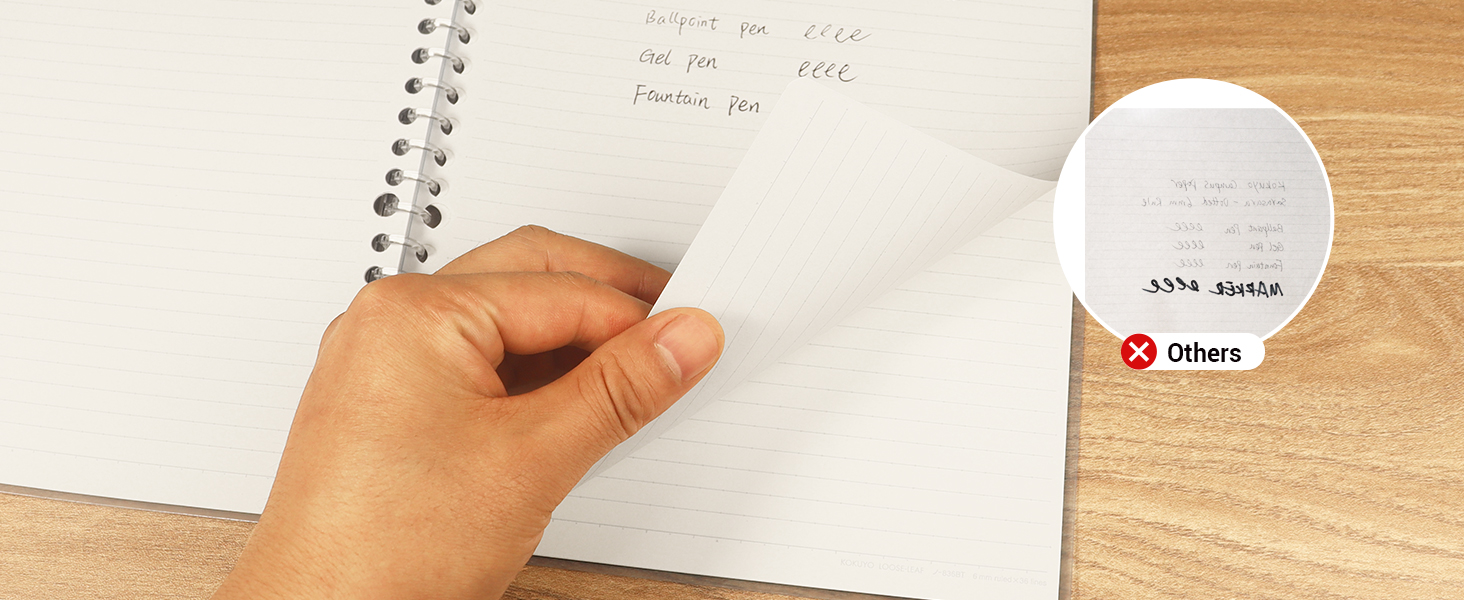 Ballpoint pen eeee
Gel pen eeee
Fountain pen
Kokuyo Campus Paper
6mm Rule
Ballpoint Pen eeee
Gel Pen eeee
Fountain Pen eeee
MARKER eeee
Others